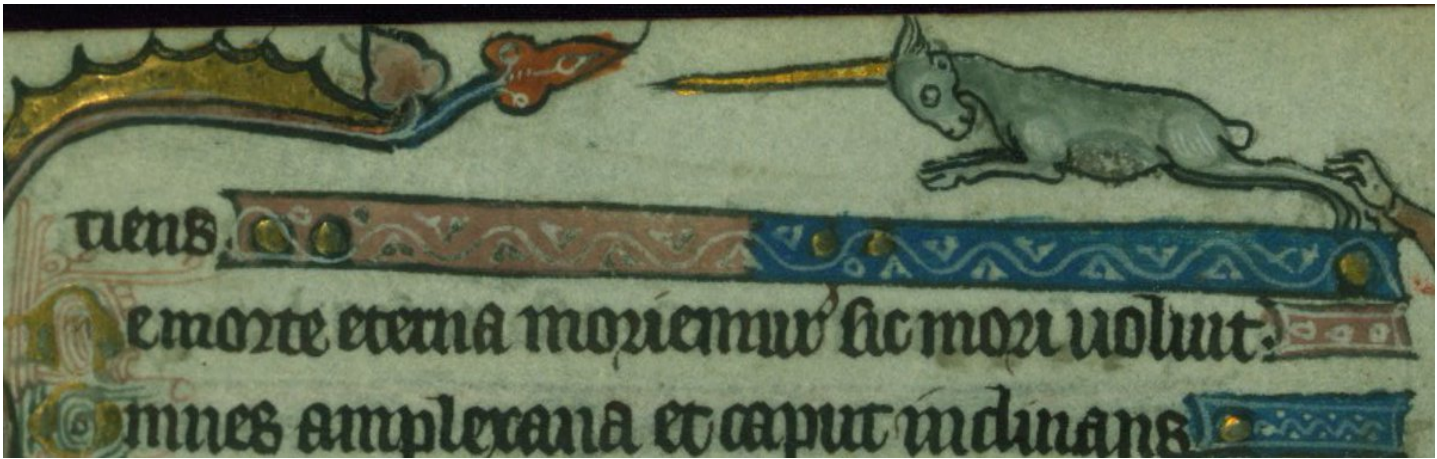 tiens.
Ne morte eterna moriemur sic mori uoluit.
Omnes amplexana et caput inclinans